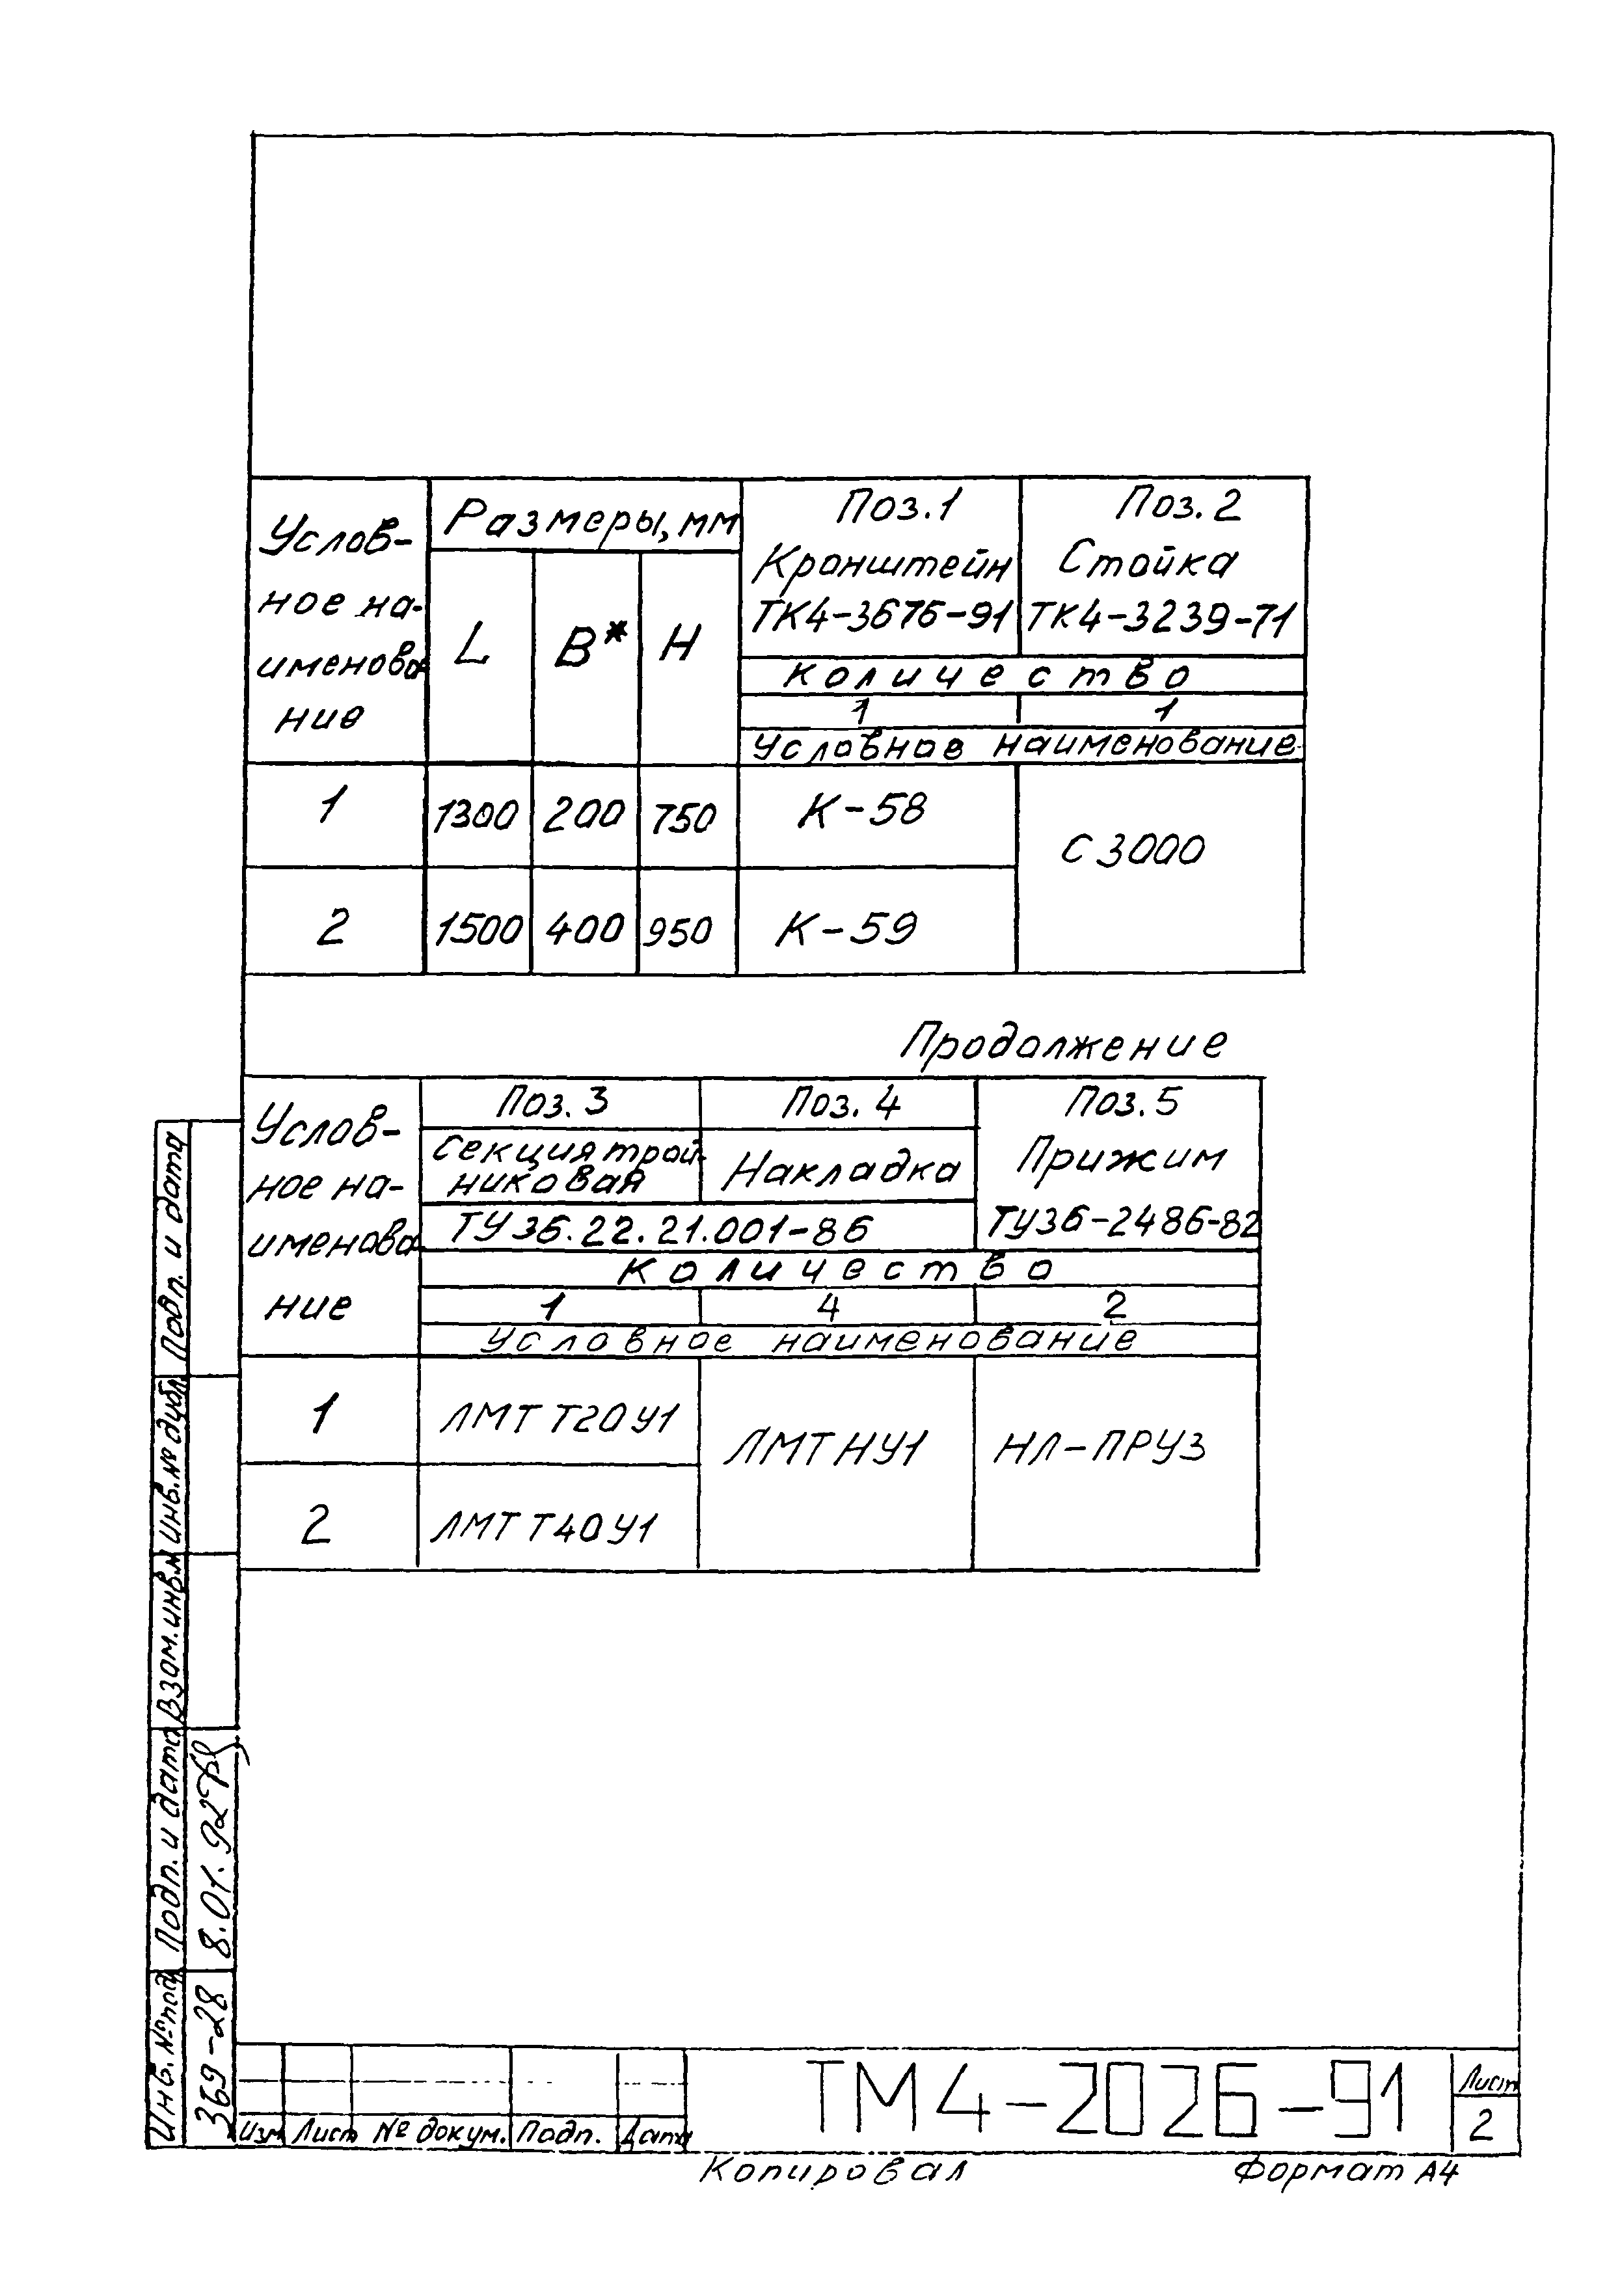 Услов-
ное на-
именова
ние
Размеры, мм
L
B*
H
Поз.1
Кронштейн
ТК4-3676-91
Поз.2
Стойка
ТК4-3239-71
количество
1 1
Условное наименование
1 1300 200 750 К-58
С3000
2 1500 400 950 К-59
Продолжение
Услов-
ное на-
именова
ние
Поз. 3
Секция трой-
никовая
Поз. 4
Накладка
ТУ36.22.21.001-86
Поз. 5
Прижим
ТУ36-2486-82
Количество
1 4 2
Условное наименование
1 ЛМТ Т20У1
ЛМТ НУ1 НЛ-ПРУ3
2 ЛМТ Т40У1
Подп. и дата
Инв.№ дубл.
Взам.инв.№
Подп. и дата
8.01.92
Инв.№под
369-28
Изм Лист № докум. Подп. Дата
ТМ4-2026-91
Лист
2
Копировал
Формат А4